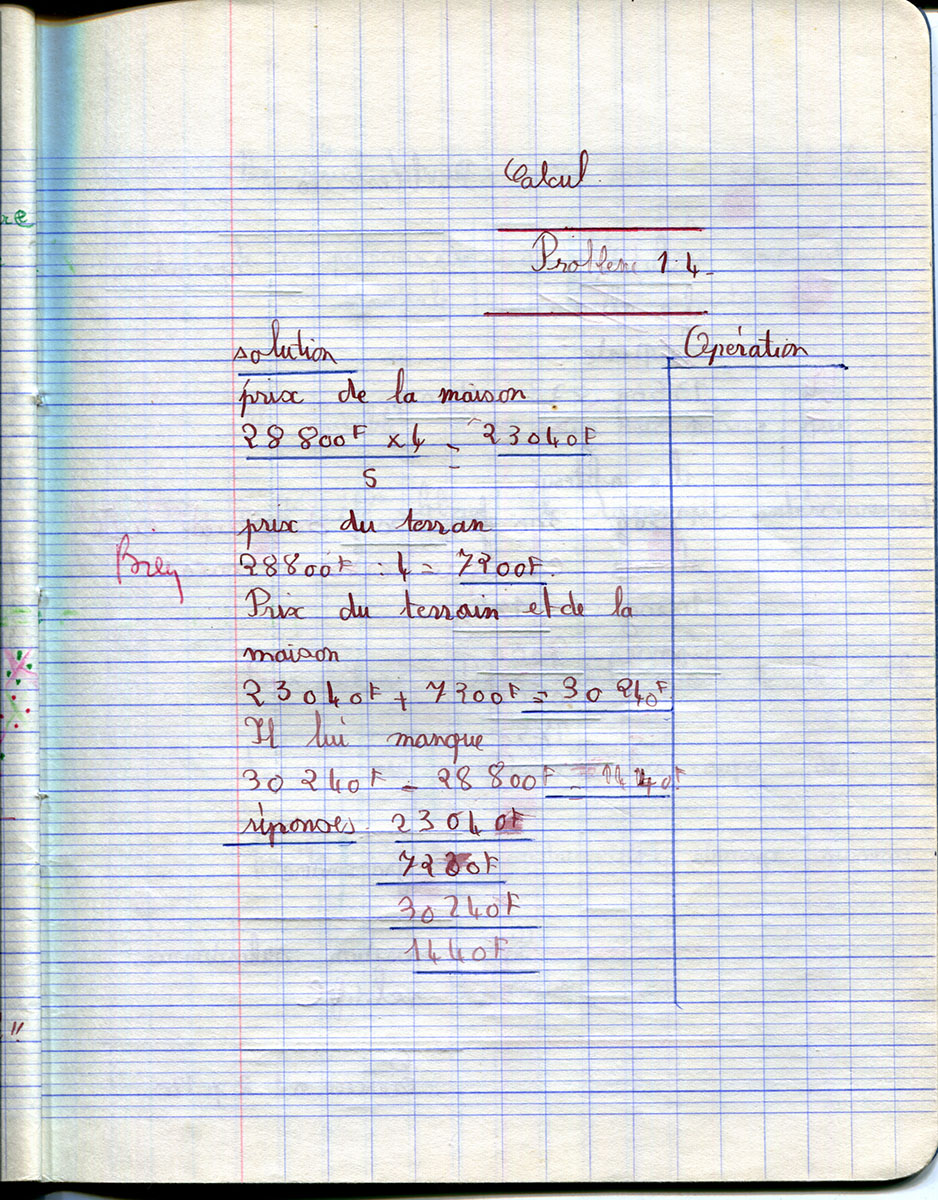 re
Calcul.
Problème 14.
solution
Opération
prix de la maison
28 800F x 4 = 23040F
5
prix du terran
Bien
28800F : 4 = 7200F.
Prix du terrain et de la
maison
23040F + 7200F = 30 240F
Il lui manque
30 240F - 28 800F = 1440F
réponses 23040F
7200F
30240F
1440F
"